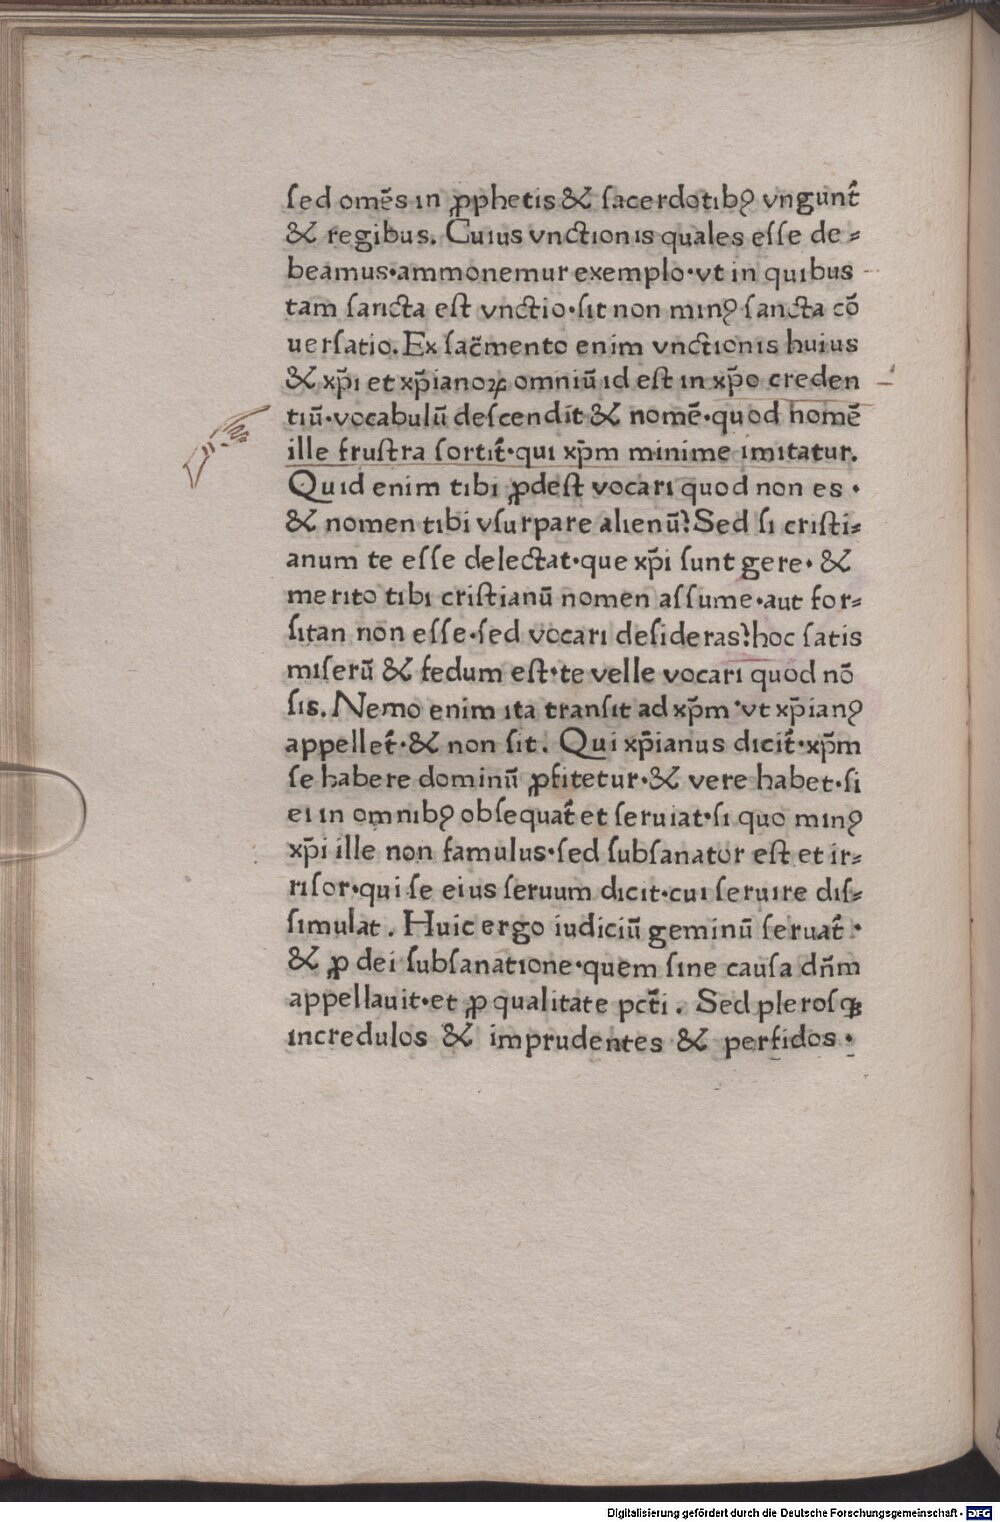 ſed omẽs in ꝓphetis & ſacerdotibꝰ vngunt᷑
& regibus. Cuius vnctionis quales eſſe de⸗
beamus·ammonemur exemplo·vt in quibus
tam ſancta eſt vnctio·ſit non minꝰ ſancta cõ
uerſatio. Ex ſac̃mento enim vnctionis huius
& xp̃i et xp̃ianoꝝ omniũ id eſt in xp̃o creden
tiũ·vocabulũ deſcendit & nomẽ·quod nomẽ
ille fruſtra ſortit᷑·qui xp̃m minime imitatur.
Quid enim tibi ꝓdeſt vocari quod non es·
& nomen tibi vſurpare alienũ? Sed ſi criſti⸗
anum te eſſe delectat·que xp̃i ſunt gere· &
merito tibi criſtianũ nomen aſſume·aut for⸗
ſitan non eſſe·ſed vocari deſideras? hoc ſatis
miſerũ & fedum eſt·te velle vocari quod nõ
ſis. Nemo enim ita tranſit ad xp̃m·vt xp̃ianꝰ
appellet᷑·& non ſit. Qui xp̃ianus dicit᷑·xp̃m
ſe habere dominũ ꝓfitetur·& vere habet·ſi
ei in omnibꝰ obſequat᷑ et ſeruiat·ſi quo minꝰ
xp̃i ille non famulus·ſed ſubſanator eſt et ir⸗
riſor·qui ſe eius ſeruum dicit·cui ſeruire diſ⸗
ſimulat. Huic ergo iudiciũ geminũ ſeruat᷑·
& ꝓ dei ſubſanatione·quem ſine cauſa dñm
appellauit·et ꝓ qualitate pct̃i. Sed pleroſqꝫ
incredulos & imprudentes & perfidos·
Digitalisierung gefördert durch die Deutsche Forschungsgemeinschaft - DFG